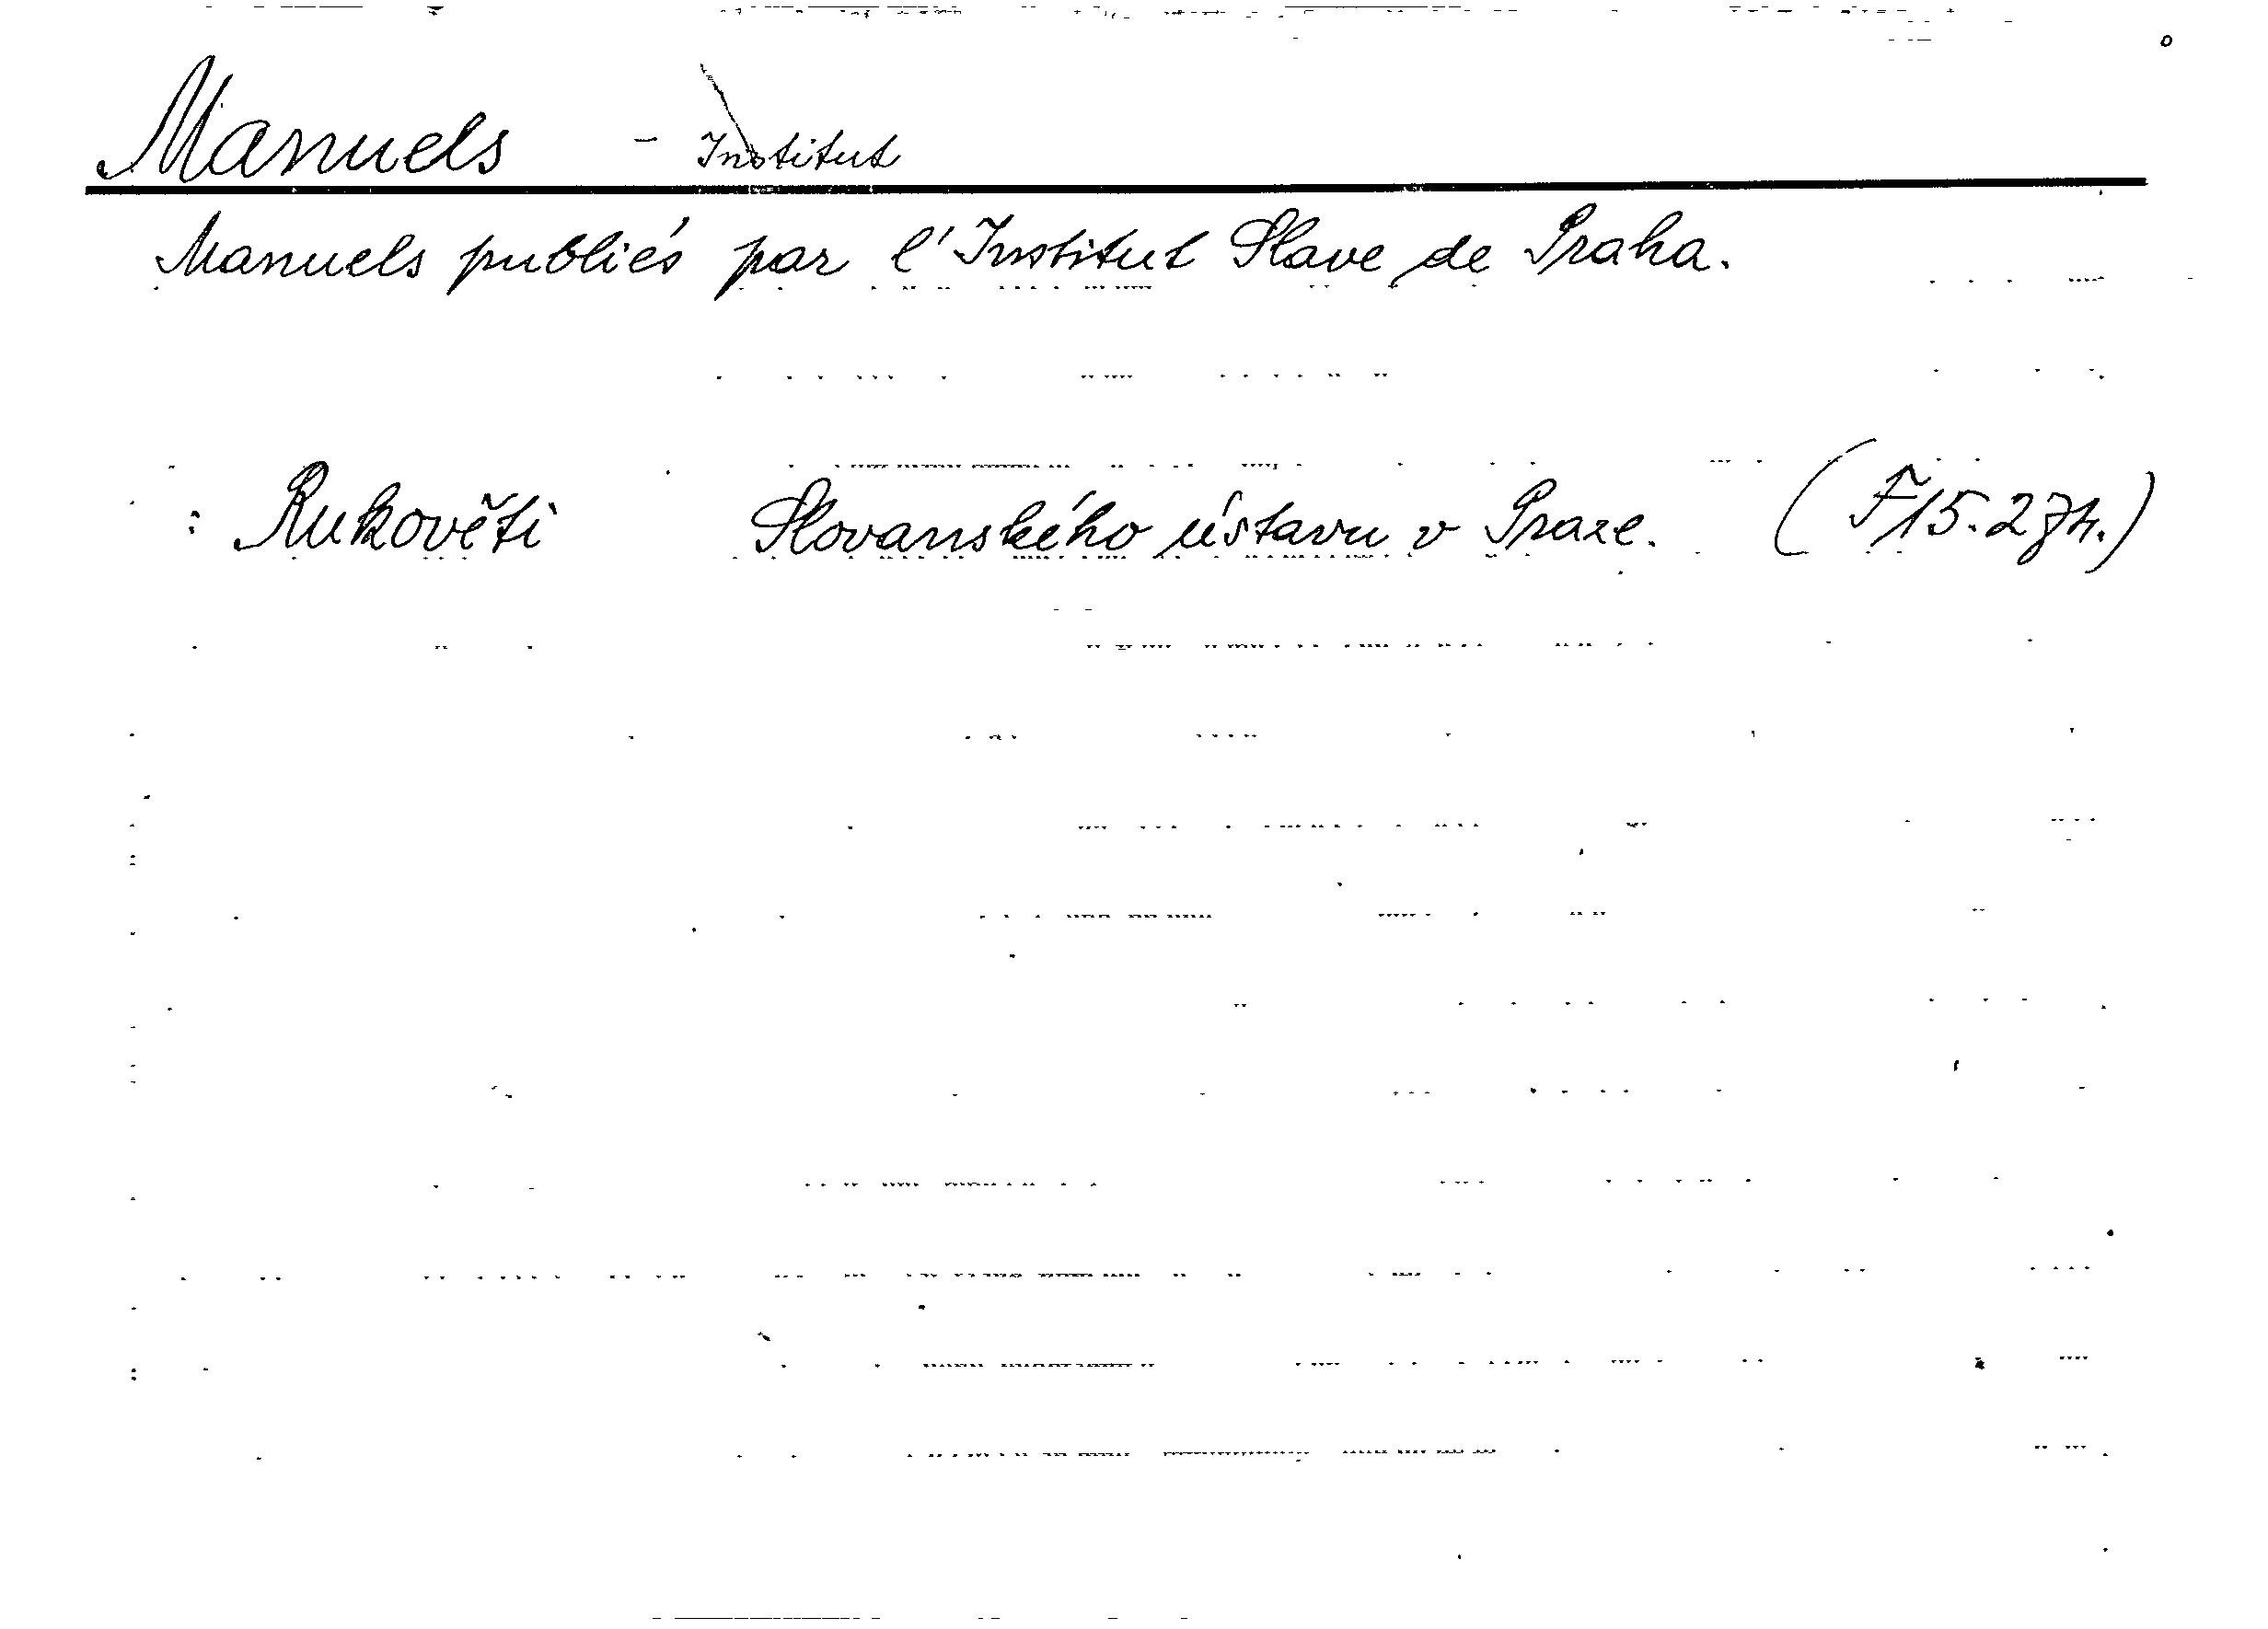 Manuels - Institut
Manuels publiés par l'Institut Slave de Praha.
: Rukověti Slovanského ústavu v Praze. (F15.274.)